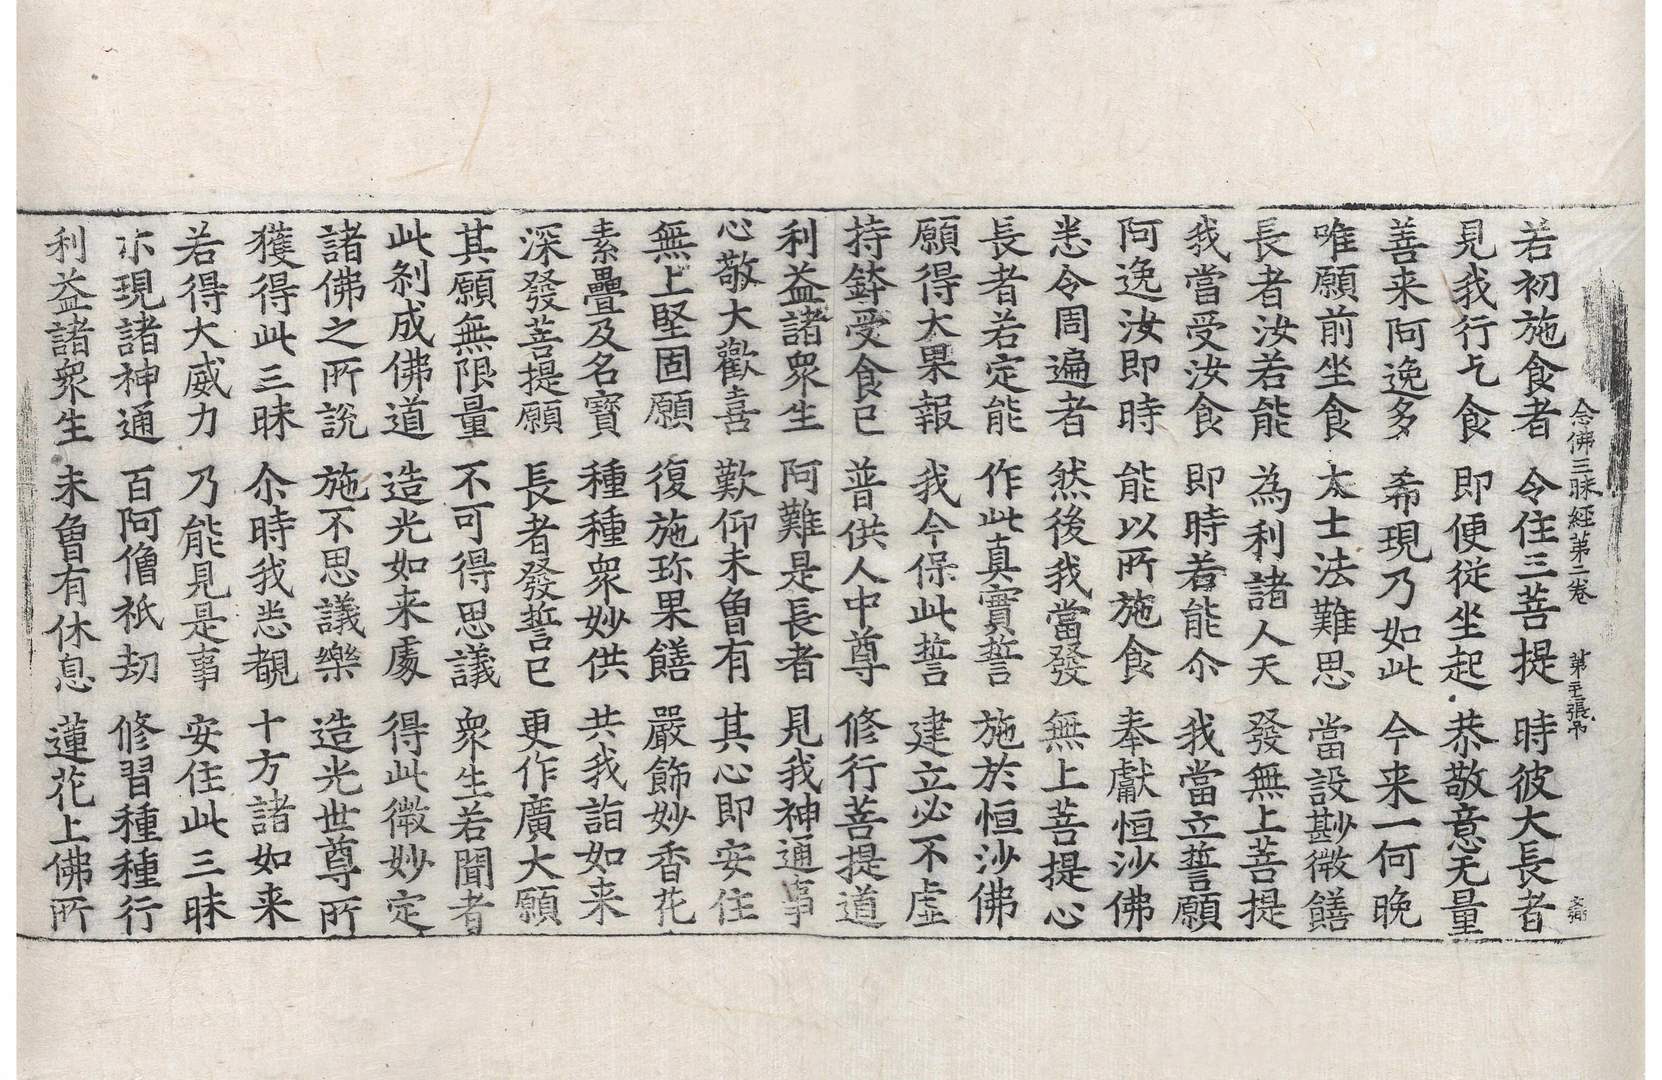 念佛三昧經第二卷 第三張 吊
若初施食者 令住三菩提 時彼大長者
見我行乞食 即便從坐起 恭敬意无量
善来阿逸多 希現乃如此 今来一何晚
唯願前坐食 大士法難思 當設尠微饍
長者汝若能 為利諸人天 發無上菩提
我當受汝食 即時若能尒 我當立誓願
阿逸汝即時 能以所施食 奉獻恒沙佛
悉令周遍者 然後我當發 無上菩提心
長者若定能 作此真實誓 施於恒沙佛
願得大果報 我今保此誓 建立必不虛
持鉢受食已 普供人中尊 修行菩提道
利益諸衆生 阿難是長者 見我神通事
心敬大歡喜 歎仰未曾有 其心即安住
無上堅固願 復施珎果饍 嚴飾妙香花
素疊及名寶 種種衆妙供 共我詣如来
深發菩提願 長者發誓已 更作廣大願
其願無限量 不可得思議 衆生若聞者
此刹成佛道 造光如来處 得此微妙定
諸佛之所説 施不思議樂 造光世尊所
獲得此三昧 尒時我悉覩 十方諸如来
若得大威力 乃能見是事 安住此三昧
示現諸神通 百阿僧祇劫 修習種種行
利益諸衆生 未曾有休息 蓮花上佛所